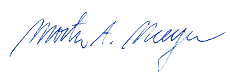 Martin A. Meyer